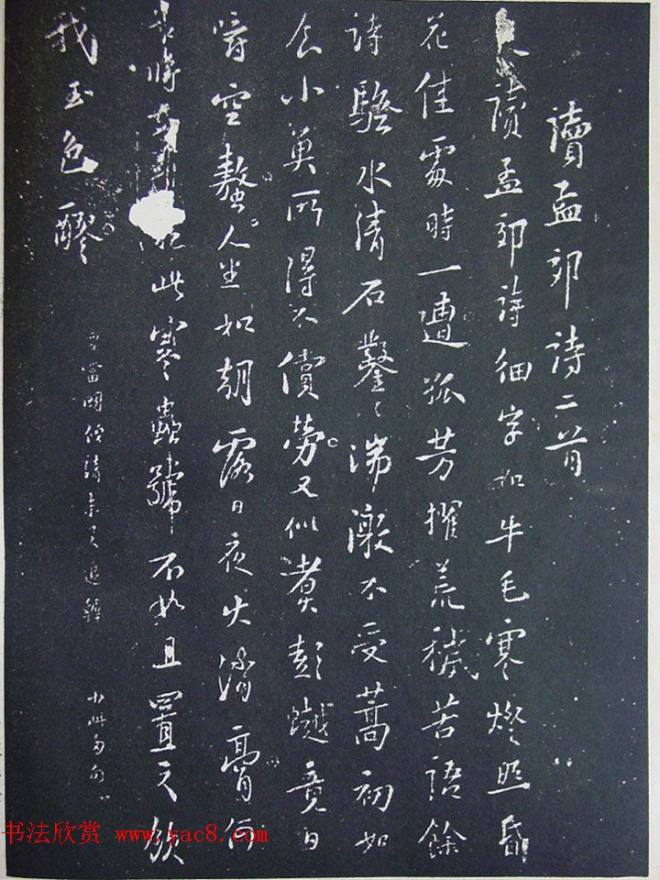 讀孟郊詩二首
讀孟郊詩細字如牛毛寒燈照昏
花佳處時一遭孤芳擢荒穢苦語餘
詩騷水清石鑿々湍激不受蒿初如
食小魚所得不償勞又似煮彭𧑅竟日
嚼空螯人生如朝露日夜火消膏何
苦將此寒蟲號不如且置之飲
我玉色醪
书法欣赏 www.yac8.com